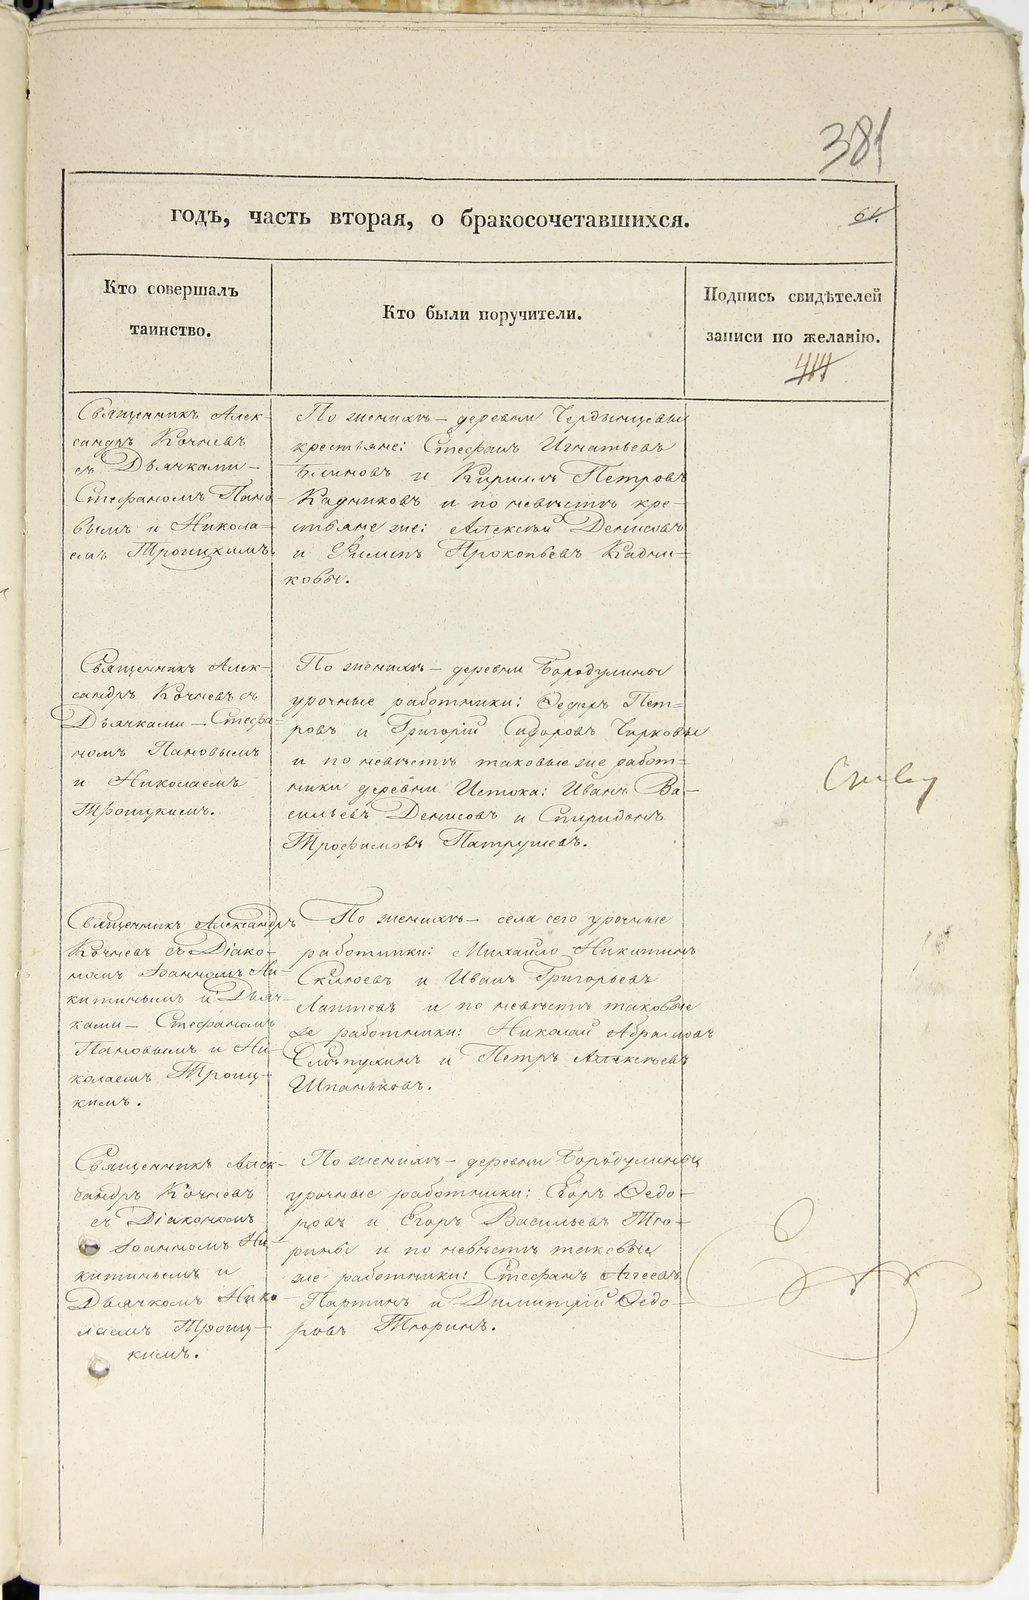 381
годъ, часть вторая, о бракосочетавшихся.
61.
Кто совершалъ
таинство.
Кто были поручители.
Подпись свидѣтелей
записи по желанію.
Священникъ Алек-
сандръ Кочневъ
съ Дьячками -
Стефаномъ Пано-
вымъ и Никола-
емъ Троицкимъ.
По женихѣ - деревни Чердынцевы
крестьяне: Стефанъ Игнатьевъ
Блиновъ и Кириллъ Петровъ
Кадниковъ и по невѣстѣ кре-
стьяне же: Алексѣй Денисовъ
и Филипъ Прокопьевъ Кадни-
ковы.
Священникъ Алек-
сандръ Кочневъ съ
Дьячками - Стефа-
номъ Пановымъ
и Николаемъ
Троицкимъ.
По женихѣ - деревни Бородулины
урочные работники: Ѳедоръ Пет-
ровъ и Григорій Сидоровъ Чирковы
и по невѣстѣ таковые же работ-
ники деревни Истока: Иванъ Ва-
сильевъ Денисовъ и Спиридонъ
Трофимовъ Патрушевъ.
Священникъ Александръ
Кочневъ съ Діако-
номъ Іоанномъ Ни-
китинымъ и Дьяч-
ками - Стефаномъ
Пановымъ и Ни-
колаемъ Троиц-
кимъ.
По женихѣ - села сего урочные
работники: Михайло Никитинъ
и Иванъ Григорьевъ
Лаптевъ и по невѣстѣ таковые
же работники: Николай Абрамовъ
и Петръ Алексѣевъ
Шпаньковъ.
Священникъ Алек-
сандръ Кочневъ
съ Діакономъ
Іоанномъ Ни-
китинымъ и
Дьячкомъ Нико-
лаемъ Троиц-
кимъ.
По женихѣ - деревни Бородулины
урочные работники: Егоръ Ѳедо-
ровъ и Егоръ Васильевъ Тю-
рины и по невѣстѣ таковые
же работники: Стефанъ Аггеевъ
Партинъ и Димитрій Ѳедо-
ровъ Тюринъ.
METRIKI.GASO-URAL.RU